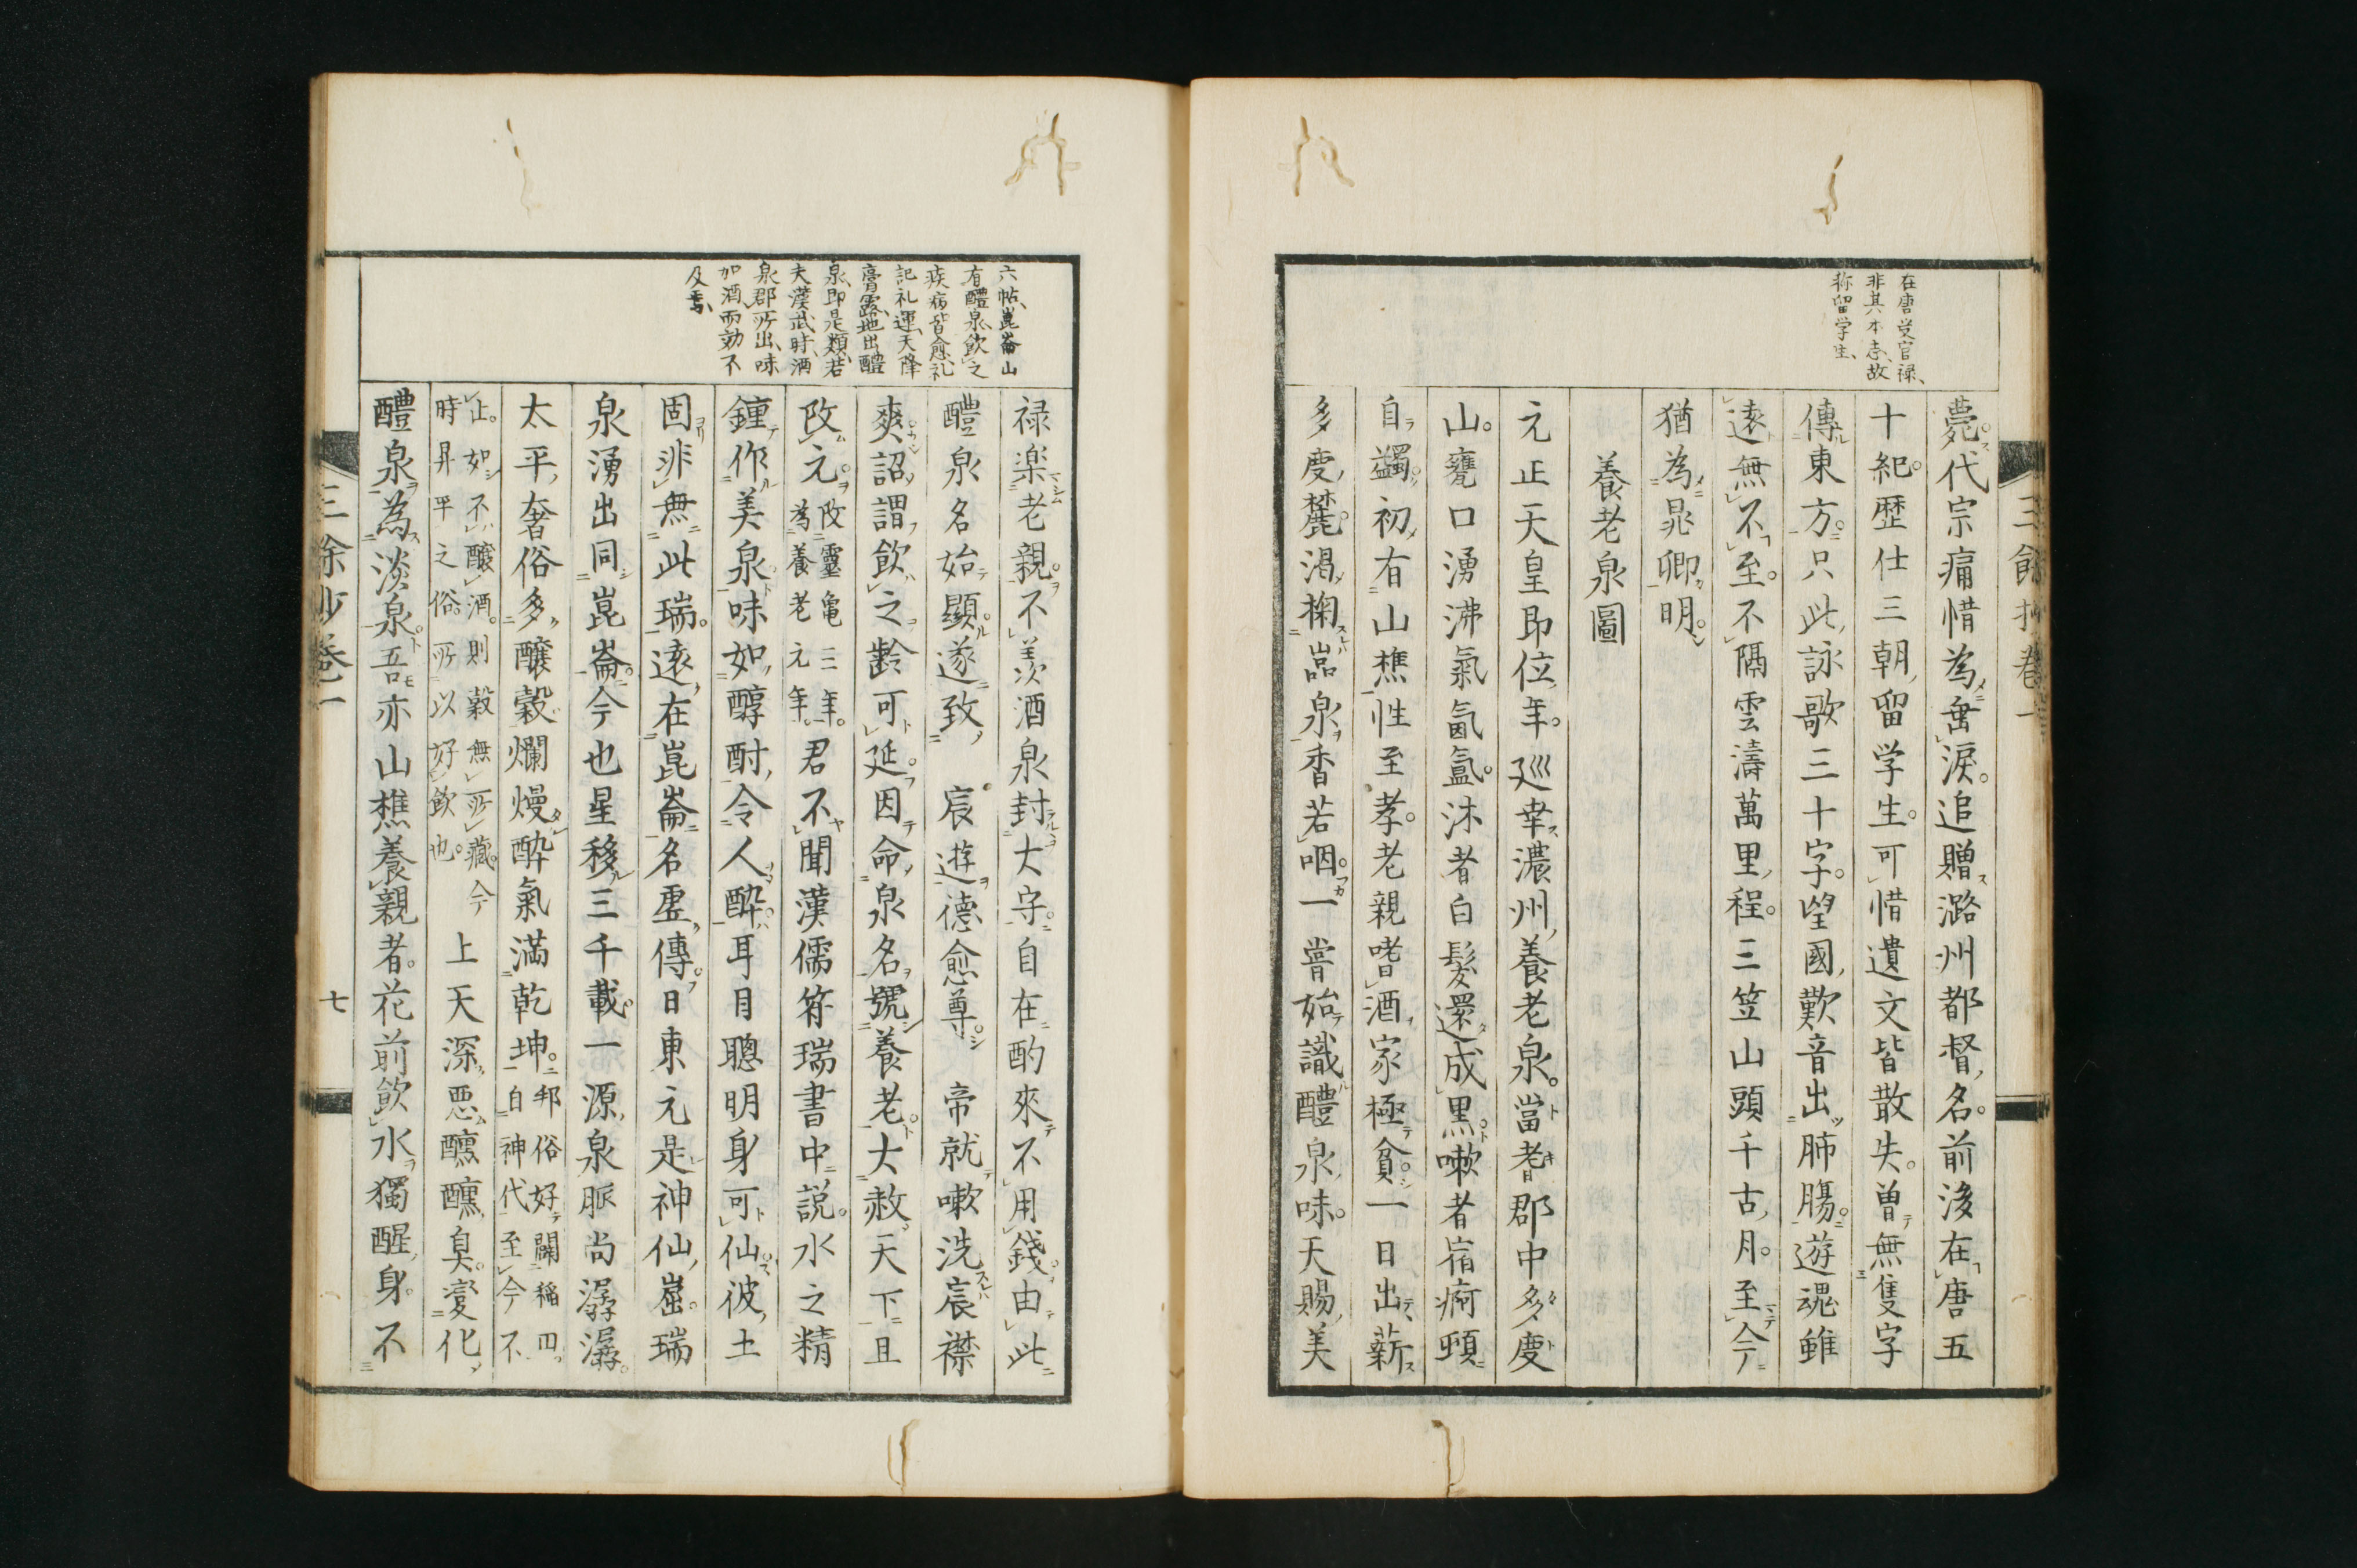 在唐受官禄、
非其本志、故
称留学生、
薨代宗痛惜為垂淚追贈潞州都督名前後在唐五
十紀歴仕三朝留学生可惜遺文皆散失曽無隻字
傳東方只此詠歌三十字望國歎音出肺膓遊魂雖
遠無不至不隔雲濤萬里程三笠山頭千古月至今
猶為晁卿明
養老泉圖
元正天皇即位年巡幸濃州養老泉當耆郡中多度
山甕口湧沸氣氤氳沐者白髪還成黒嗽者宿痾頓
自蠲初有山樵性至孝老親嗜酒家極貧一日出薪
多度麓渇掬嵓泉香若咽一嘗始識醴泉味天賜美
三餘抄巻一
六帖、崑崙山
有醴泉、飲之
疾病皆愈、礼
記礼運、天降
膏露、地出醴
泉、即是類、若
夫漢武時、酒
泉郡所出、味
如酒、而効不
及焉、
禄楽老親不羨酒泉封大守自在酌來不用錢由此
醴泉名始顯遂致 宸遊徳愈尊 帝就嗽洗宸襟
爽詔謂飲之齡可延因命泉名號養老大赦天下且
改元改靈亀三年為養老元年君不聞漢儒符瑞書中説水之精
鍾作美泉味如醇酎令人酔耳目聰明身可仙彼土
固非無此瑞遠在崑崙名虚傳日東元是神仙窟瑞
泉湧出同崑崙今也星移三千載一源泉脈尚潺潺
太平奢俗多醸穀爛熳酔氣満乾坤邦俗好闢稲田自神代至今不
止如不醸酒則穀無所藏今時昇平之俗所以好飲也上天深悪醺醺臭變化
醴泉為淡泉吾亦山樵養親者花前飲水獨醒身不
三餘抄巻一
七